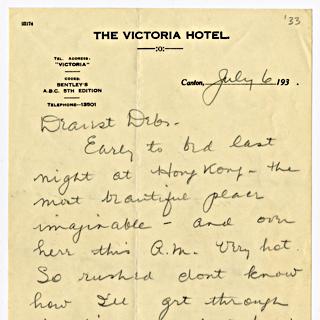 10174
'33
THE VICTORIA HOTEL.
TEL. ADDRESS:
"VICTORIA"
CODES:
BENTLEY'S
A.B.C. 5TH EDITION
TELEPHONE—13501
Canton, July 6 193 .
Dearest Debs-
Early to bed last
night at Hong Kong - the
most beautiful place
imaginable - and over
here this A.M. Very hot.
So rushed dont know
how I'll get through